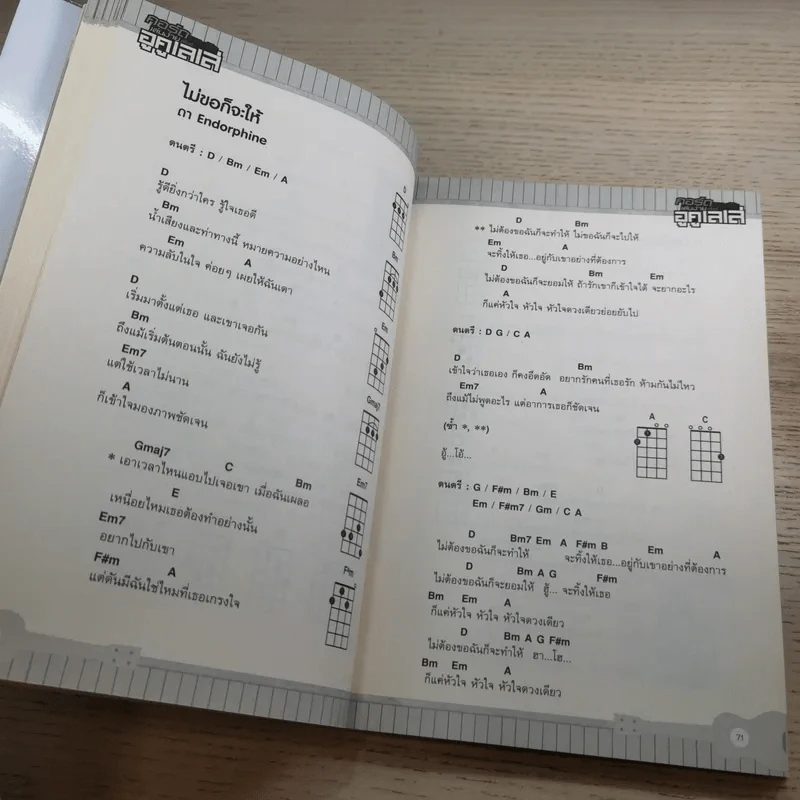 คอร์ด
เล่นง่าย
อูคูเลเล่
ไม่ขอก็จะให้
ดา Endorphine
ดนตรี : D / Bm / Em / A
D
รู้ดียิ่งกว่าใคร รู้ใจเธอดี
Bm
น้ำเสียงและท่าทางนี้ หมายความอย่างไหน
Em A
ความลับในใจ ค่อยๆ เผยให้ฉันเดา
D
เริ่มมาตั้งแต่เธอ และเขาเจอกัน
Bm
ถึงแม้เริ่มต้นตอนนั้น ฉันยังไม่รู้
Em7
แต่ใช้เวลาไม่นาน
A
ก็เข้าใจมองภาพชัดเจน
Gmaj7 C Bm
* เอาเวลาไหนแอบไปเจอเขา เมื่อฉันเผลอ
E
เหนื่อยไหมเธอต้องทำอย่างนั้น
Em7
อยากไปกับเขา
F#m A
แต่ตันมีฉันใช่ไหมที่เธอเกรงใจ
D
Bm
Em
Gmaj7
Em7
คอร์ด
เล่นง่าย
อูคูเลเล่
D Bm
** ไม่ต้องขอฉันก็จะทำให้ ไม่ขอฉันก็จะไปให้
Em A
จะทิ้งให้เธอ...อยู่กับเขาอย่างที่ต้องการ
D Bm Em
ไม่ต้องขอฉันก็จะยอมให้ ถ้ารักเขาก็เข้าใจได้ จะยากอะไร
A
ก็แค่หัวใจ หัวใจ หัวใจดวงเดียวย่อยยับไป
ดนตรี : D G / C A
D Bm
เข้าใจว่าเธอเอง ก็คงอึดอัด อยากรักคนที่เธอรัก ห้ามกันไม่ไหว
Em7 A
ถึงแม้ไม่พูดอะไร แต่อาการเธอก็ชัดเจน
A C
(ซ้ำ *, **)
อู้...โอ้...
ดนตรี : G / F#m / Bm / E
Em / F#m7 / Gm / C A
D Bm7 Em A F#m B Em A
ไม่ต้องขอฉันก็จะทำให้ จะทิ้งให้เธอ...อยู่กับเขาอย่างที่ต้องการ
D Bm A G F#m
ไม่ต้องขอฉันก็จะยอมให้ ฮู้... จะทิ้งให้เธอ
Bm Em A
ก็แค่หัวใจ หัวใจ หัวใจดวงเดียว
D Bm A G F#m
ไม่ต้องขอฉันก็จะทำให้ ฮา...โฮ...
Bm Em A
ก็แค่หัวใจ หัวใจ หัวใจดวงเดียว
71